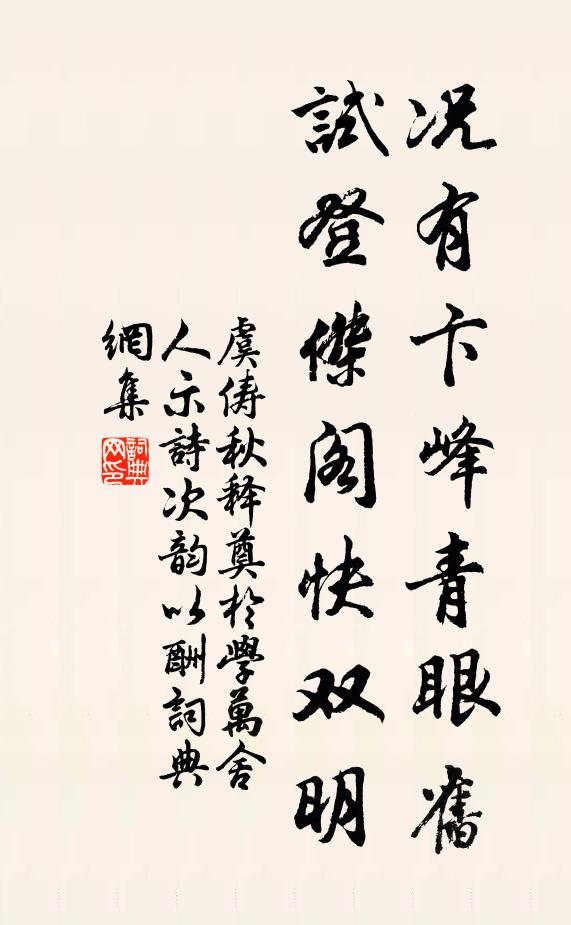 况有卞峰青眼舊
試登傑阁快双明
虞俦秋释奠於學萬舍
人示詩次韵以酬詞典
網集
詞典网印